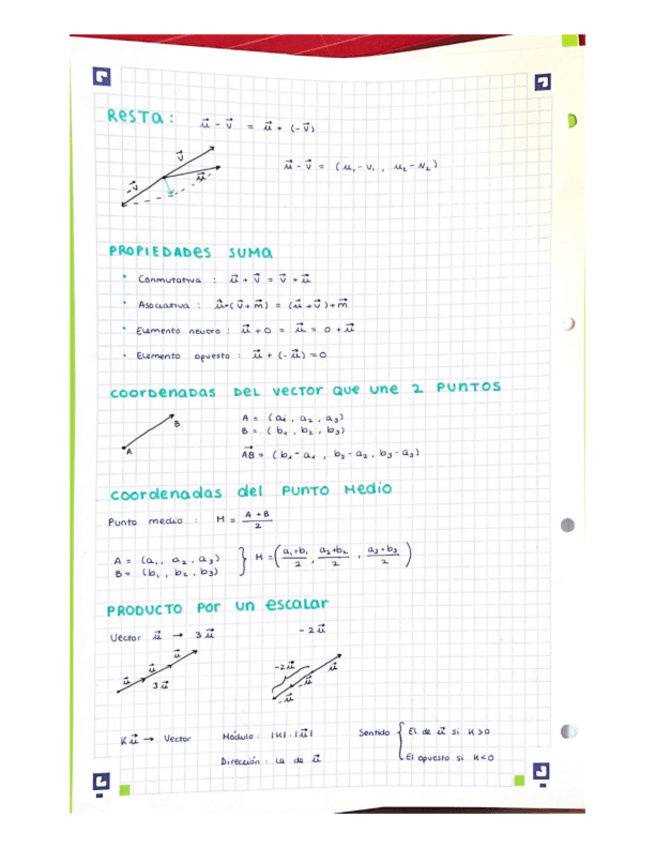 Resta: u⃗ - v⃗ = u⃗ + (-v⃗)
v⃗
-v⃗ u⃗
u⃗ - v⃗ = (u₁-v₁ , u₂-v₂)
PROPIEDADES SUMA
• Conmutativa : u⃗ + v⃗ = v⃗ + u⃗
• Asociativa : u⃗+(v⃗+m⃗) = (u⃗+v⃗)+m⃗
• Elemento neutro : u⃗ + 0 = u⃗ = 0 + u⃗
• Elemento opuesto : u⃗ + (-u⃗) = 0
COORDENADAS DEL VECTOR QUE UNE 2 PUNTOS
A B
A = (a₁ , a₂ , a₃)
B = (b₁ , b₂ , b₃)
AB⃗ = (b₁-a₁ , b₂-a₂ , b₃-a₃)
Coordenadas del PUNTO Medio
Punto medio : M = (A+B)/2
A = (a₁, a₂, a₃)
B = (b₁, b₂, b₃) } M = ((a₁+b₁)/2 , (a₂+b₂)/2 , (a₃+b₃)/2)
PRODUCTO POR UN escalar
Vector u⃗ → 3u⃗ -2u⃗
u⃗ u⃗ u⃗
3u⃗
-2u⃗ u⃗
-u⃗
-u⃗
Ku⃗ → Vector Módulo: |K|·|u⃗| Sentido { El de u⃗ si K>0
Dirección : La de u⃗ El opuesto si K<0